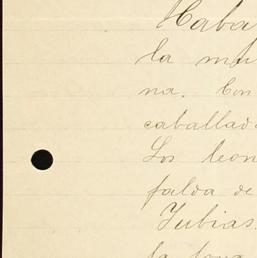 Haba
la mu
na. Con
caballad
Los leon
falda de
Tubias.
la